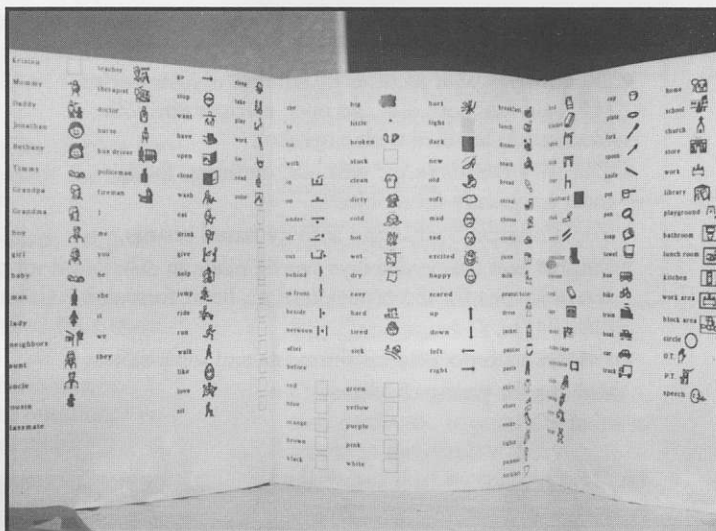 Kristen
Mommy
Daddy
Jonathan
Bethany
Timmy
Grandpa
Grandma
boy
girl
baby
man
lady
neighbors
aunt
uncle
cousin
classmate
teacher
therapist
doctor
nurse
bus driver
policeman
fireman
I
me
you
he
she
it
we
they
go
stop
want
have
open
close
wash
eat
drink
give
help
jump
ride
run
walk
like
love
sit
sleep
take
play
work
tie
read
color
the
to
with
in
on
under
off
out
behind
in front
beside
between
after
before
red
blue
orange
brown
black
big
little
broken
stuck
clean
dirty
cold
hot
wet
dry
easy
hard
tired
sick
green
yellow
purple
pink
white
hurt
light
dark
new
old
soft
mad
sad
excited
happy
scared
up
down
left
right
breakfast
lunch
dinner
snack
bread
cereal
cheese
cookie
juice
milk
peanut butter
dress
jacket
pajamas
pants
shirt
shoes
socks
light
cup
plate
fork
spoon
knife
pot
pen
soap
towel
bus
bike
train
boat
car
truck
home
school
church
store
work
library
playground
bathroom
lunch room
kitchen
work area
block area
circle
O.T.
P.T.
speech